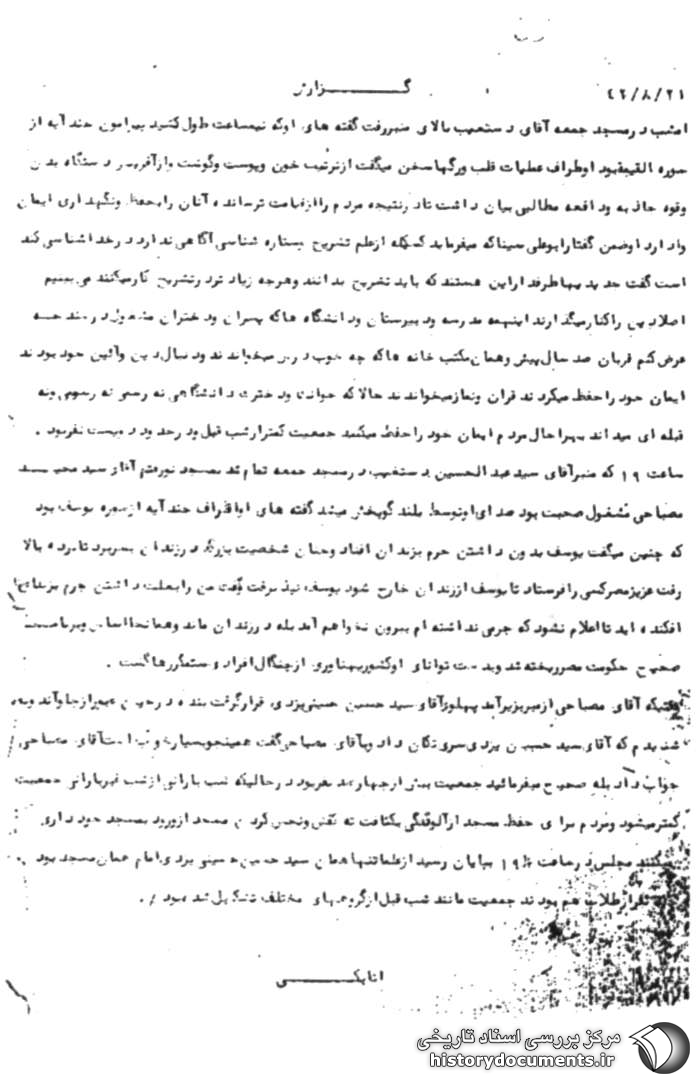 ۴۲/۸/۲۱ گـــــزارش
امشب در مسجد جمعه آقای دستغیب بالای منبر رفت گفته های او که نیمساعت طول کشید پیرامون چند آیه از
سوره القیمه بود او اطراف عملیات قلب و رگها سخن میگفت از ترتیب خون و پوست و گوشت و از آفرینش دستگاه بدن
وقوه جاذبه و دافعه مطالبی بیان داشت تا در نتیجه مردم را از قیامت ترسانده آنان را بحفظ و نگهداری ایمان
وادارد او ضمن گفتار ابوعلی سینا که میفرماید کسیکه از علم تشریح و ستاره شناسی آگاهی ندارد در خداشناسی کند
است گفت جدیدیها طرفدار این هستند که باید تشریح بدانند و هرچه زیادتر در تشریح کار میکنند می بینیم
اصلا دین را کنار میگذارند اینهمه مدرسه و دبیرستان و دانشگاه ها که پسران و دختران مشغول درسند چه
عرض کنم قربان صد سال پیش و همان مکتب خانه ها که چه خوب درس میخواندند و دنبال دین و آئین خود بودند
ایمان خود را حفظ میکردند قران و نماز میخواندند حالا که جوانان و دختران دانشگاهی نه رسمی نه رسومی و نه
قبله ای میداند بهر حال مردم ایمان خود را حفظ میکنند جمعیت کمتر از شب قبل و در حدود دویست نفر بود .
ساعت ۱۹ که منبر آقای سید عبدالحسین دستغیب در مسجد جمعه تمام شد بمسجد نو رفتم آقای سید مجید
مصباحی مشغول صحبت بود صدای او توسط بلندگو پخش میشد گفته های او اطراف چند آیه از سوره یوسف بود
که چنین میگفت یوسف بدون داشتن جرم بزندان افتاد و چنان شخصیت بزرگی در زندان بسر برد تا مرده بالا
رفت عزیز مصر کسی را فرستاد تا یوسف از زندان خارج شود یوسف نپذیرفت گفت من را بعلت داشتن جرم بزندان
افکنده اید تا اعلام نشود که جرمی نداشته ام بیرون نخواهم آمد بله در زندان ماند و همانجا اساس و
صحیح حکومت مصر ریخته شد و بدست توانای او کشور پهناوری از چنگال افراد و ستمگر رها گشت .
وقتیکه آقای مصباحی از منبر بزیر آمد پهلوی آقای سید حسین حسینی یزدی قرار گرفت بنده در حین عبور از جلو آندو
شنیدم که آقای سید حسین یزدی سری تکان داد و بآقای مصباحی گفت همینجو بسیار خوب است آقای مصباحی
جواب داد بله صحیح میفرمائید جمعیت بیش از چهارصد نفر بود در حالیکه شب بارانی از شب غیر بارانی جمعیت
کمتر میشود و مردم برای حفظ مسجد از آلودگی بکثافت ته کفش و نجس کردن مسجد از ورود بمسجد خودداری
میکنند مجلس در ساعت ۱۹ بپایان رسید از علما تنها همان سید حسین حسینی یزدی امام همان مسجد بود
نفر از طلاب هم بودند جمعیت مانند شب قبل از گروههای مختلف تشکیل شده بود .
اتابکـــــی
مرکز بررسی اسناد تاریخی
historydocuments.ir